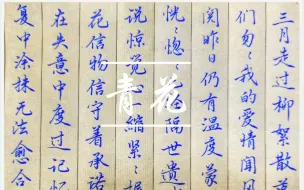 三月走过柳絮散
们匆〻我的爱情闻风
阅昨日仍有温度蒙
恍〻惚〻隔世遗
说惊觉心一缩紧〻握
花信物信守着承诺
在失意中度过记忆
复中涂抹无法愈合
青花